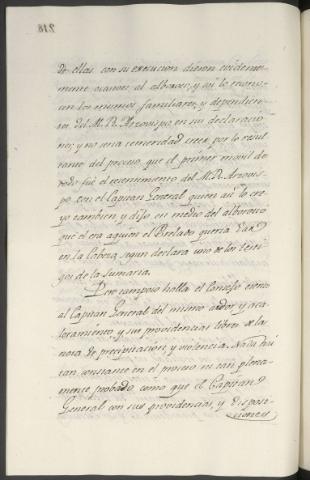 de ellas con su execucion dieron evidente-
mente ocasion al alboroto; y asi lo recono-
cen los mismos familiares, y dependien-
tes del M. R. Arzovispo en sus declaracio-
nes; y no sera temeridad creer por lo resul-
tante del proceso, que el primer movil de
todo fue el resentimiento del M. R. Arzovis-
po con el Capitan General quien asi lo cre-
yo tambien, y dijo en medio del alboroto
que el era aquien el Prelado queria dar
en la Cabeza segun declara uno de los testi-
gos de la Sumaria.
Pero tampoco halla el Consejo esento
al Capitan General del mismo ardor, y aca-
loramiento, y sus providencias libres de la
nota de precipitacion, y violencia. Nada hai
tan constante en el proceso ni tan plena-
mente probado, como que el Capitan
General con sus providencias, y disposi-
ciones